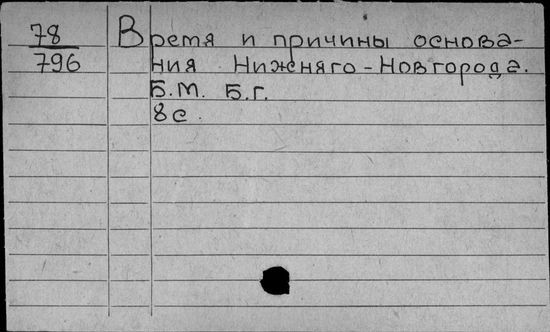 78 Время и причины основа-
796 ния Нижняго-Новгорода.
Б.М. Б.г.
8с.